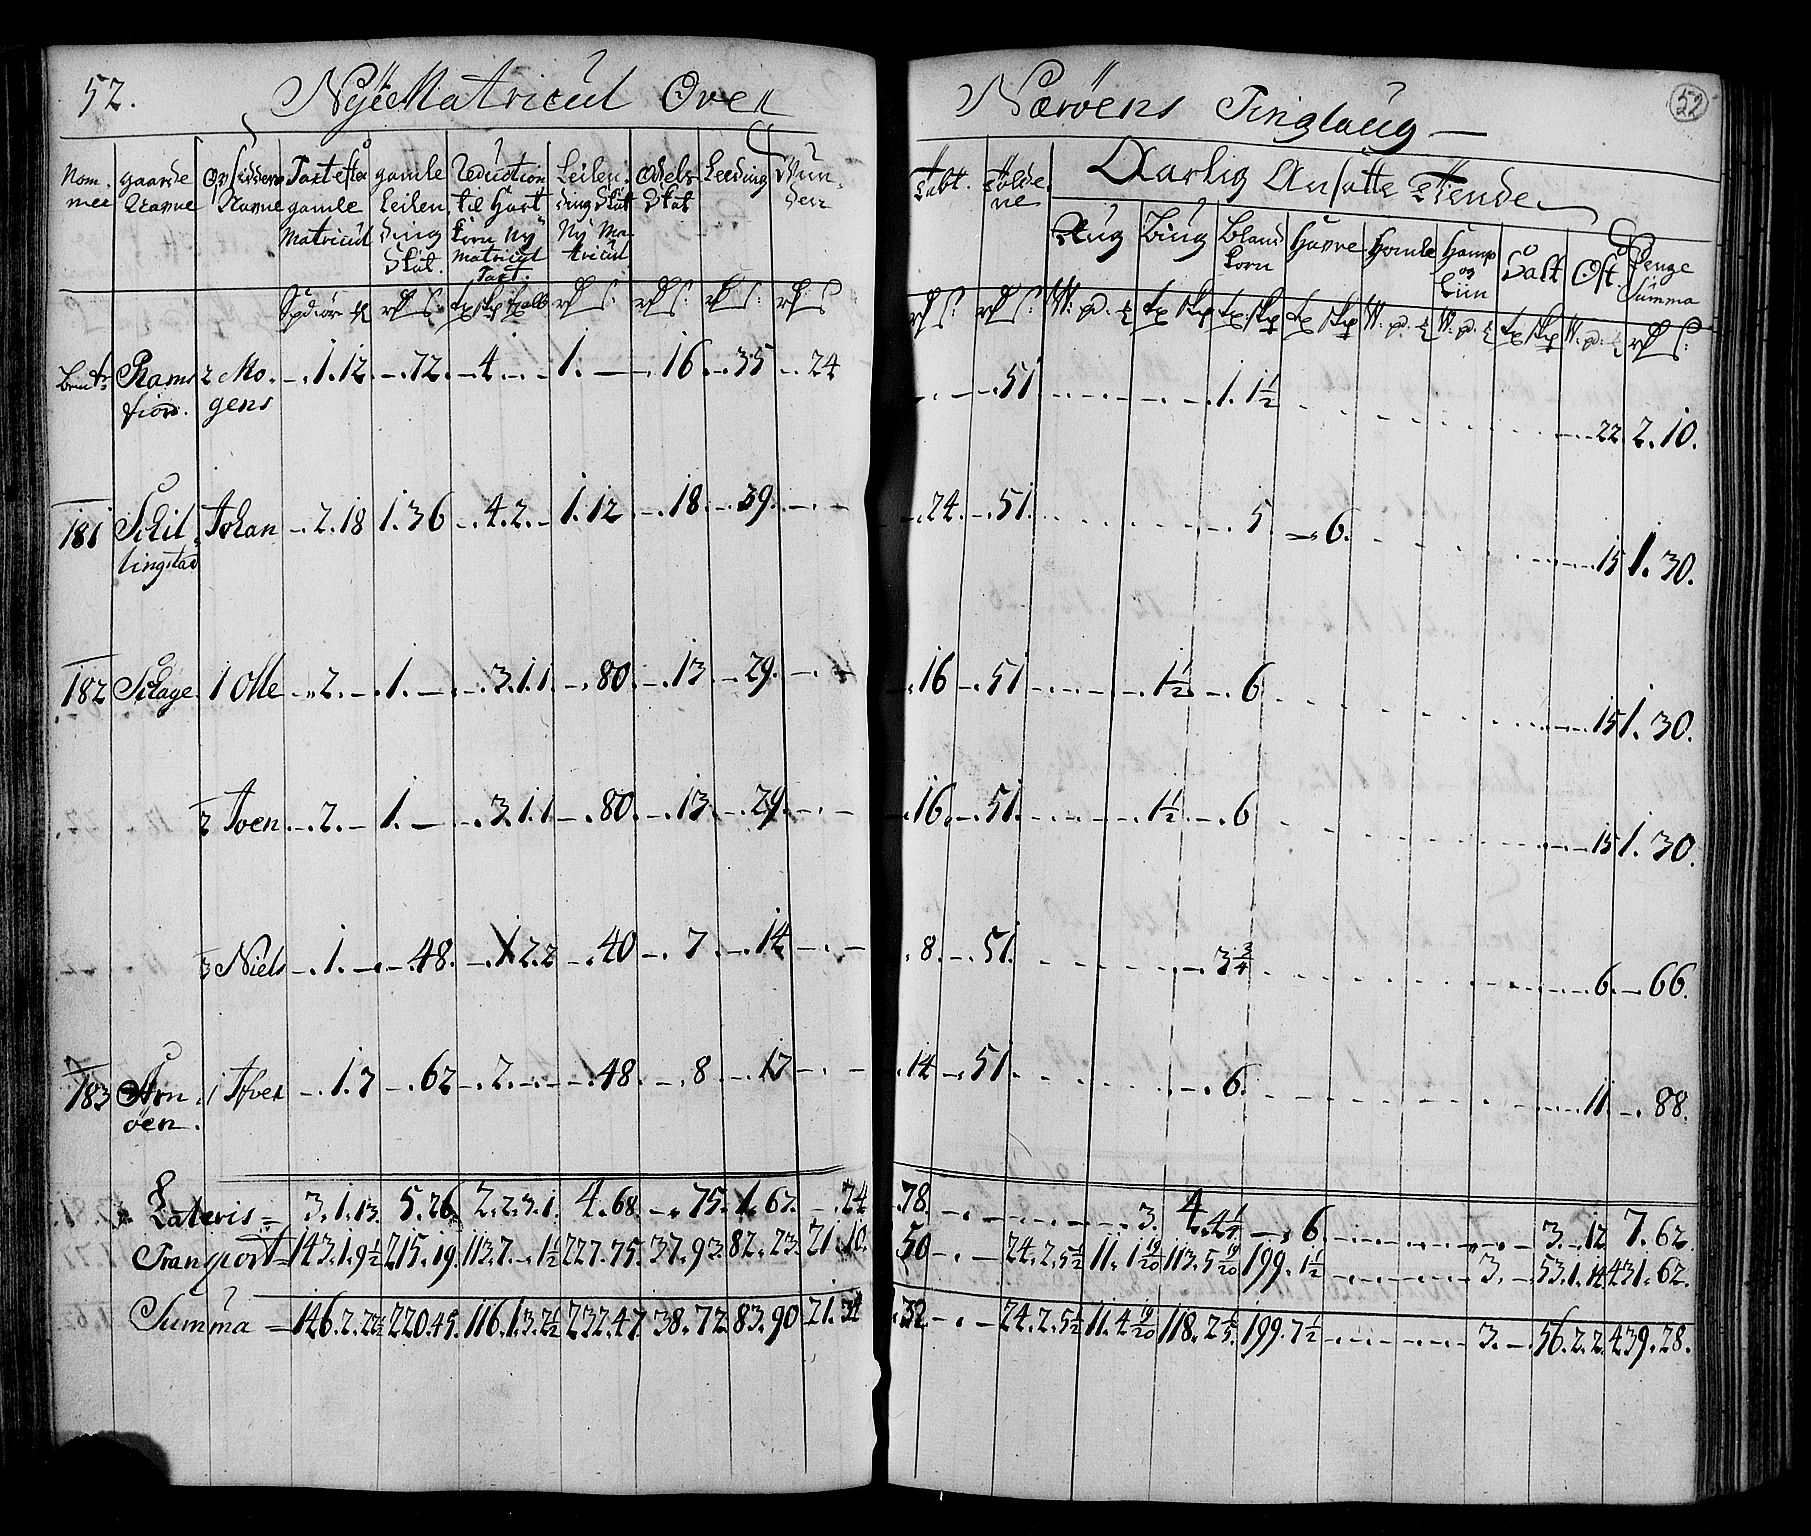 52. Nÿe Matricul Over Nærøens Tinglaug 52
Nom. mer | gaarde Navne | Opsidderes Navne | Taxt efter gamle Matricul | gamle Leilending Skat. | Reduction til Hart korn Nÿ Matricul Taxt. | Leilending Skat Nÿ Matricul | Odels Skat | Leeding | Skat. | følde ne | Aarlig Ansatte Tiende
Rug | Biug | Bland korn | Havre | Homle | Hamp og Liin | Salt | Ost. | Penge Summa
Rams fiord. | 2 Mogens | 1.12 | 72. | 4 | 1. | 16 | 35 | 24 | 51 | 1. 1½ | 22 | 2. 10.
181 | Schillingstad | Johan | 2.18 | 1.36 | 4.2. | 1.12 | 18 | 39. | 24. | 51. | 5 | 6. | 15 | 1. 30.
182 | Schage. | 1 Olle | 2. | 1. | 3.1.1 | 80. | 13 | 29. | 16 | 51 | 1½ | 6 | 15 | 1. 30.
2 Joen | 2. | 1. | 3.1.1 | 80. | 13. | 29. | 16. | 51. | 1½ | 6 | 15 | 1. 30.
3 Niels | 1. | 48. | 1 2.2 | 40 | 7 | 14 | 8. | 51. | 3¾ | 6. | 66.
183 | Arnöen. | 1 Ifver | 1.7 | 62 | 2. | 48. | 8 | 17 | 14 | 51. | 6. | 11. | 88.
Lateris = | 3.1.13. | 5.26 | 2.2.3.1. | 4.68. | 75. | 1.62. | 24 | 78. | 3. | 4.4¼ | 6 | 3. 12 | 7.62.
Transport = | 143.1.9½ | 215.19. | 113.7. 1½ | 227.75. | 37.93. | 82.23. | 21.10. | 50 | 24.2.5½ | 11.1 19/20 | 113.5 19/20 | 199.1½ | 3. | 53.1.14 | 431.62.
Summa = | 146.2.22½ | 220.45. | 116.1.3.2½ | 232.47. | 38.72 | 83.90 | 21.34 | 32 | 24.2.5½ | 11.4 19/20 | 118.2 | 199.7½ | 3. | 56.2.2. | 439.28.